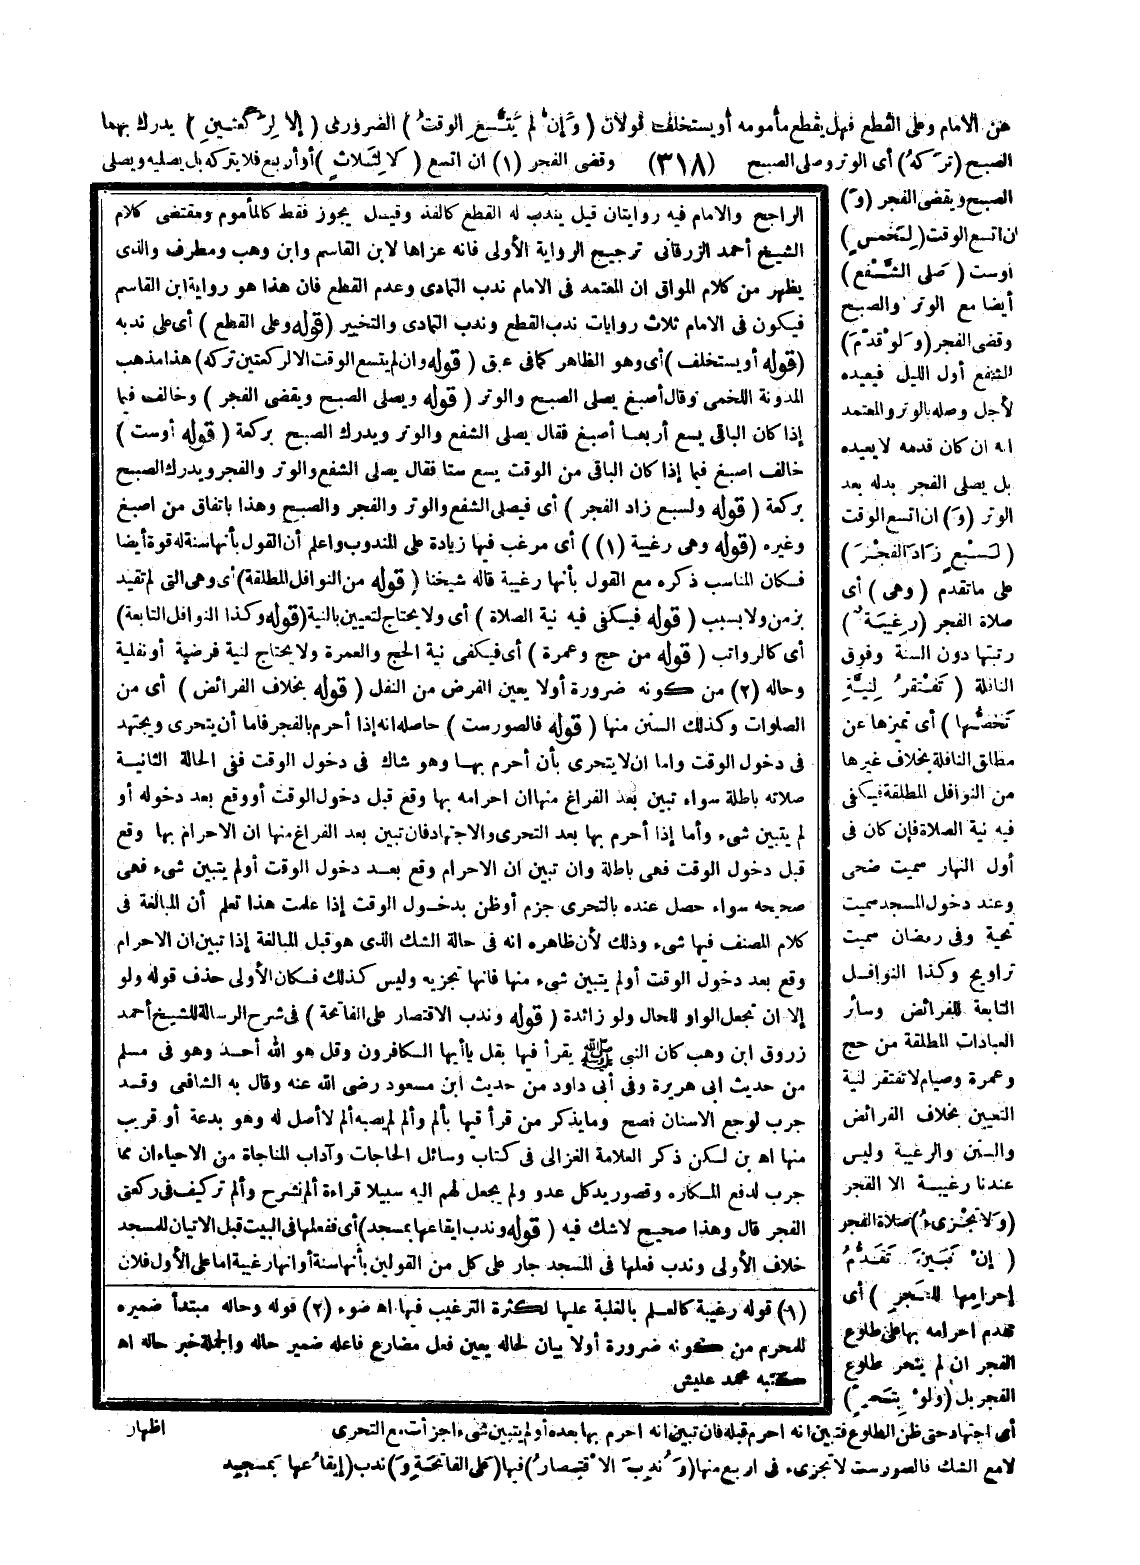 هن الامام وعلى القطع فهل يقطع مأمومه أو يستخلف قولان ( وَإنْ لم يَتَّسِعِ الوقتُ ) الضرورى ( إلا لِرَكْعتينِ ) يدرك بهما
الصبح ( تَرَكهُ ) أى الوتر وصلى الصبح (٣١٨) وقضى الفجر (١) ان اتسع ( لا لِثلاثٍ ) أو أربع فلا يتركه بل يصليه ويصلى
الصبح ويقضى الفجر ( وَ )
ان اتسع الوقت ( لِخَمسٍ )
أوست ( صَلى الشَّفع )
أيضا مع الوتر والصبح
وقضى الفجر ( وَلوْ قدَّمَ )
الشفع أول الليل فيعيده
لأجل وصله بالوتر والمعتمد
انه ان كان قدمه لا يعيده
بل يصلى الفجر بدله بعد
الوتر ( وَ ) ان اتسع الوقت
( لسَبْعٍ زَادَ الفَجْرَ )
على ما تقدم ( وهى ) أى
صلاة الفجر ( رغيبَةٌ )
رتبتها دون السنة وفوق
النافلة ( تَفْتقرُ لِنيَّةٍ
تَخصُّها ) أى تميزها عن
مطلق النافلة بخلاف غيرها
من النوافل المطلقة فيكفى
فيه نية الصلاة فإن كان فى
أول النهار سميت ضحى
وعند دخول المسجد سميت
تحية وفى رمضان سميت
تراويح وكذا النوافل
التابعة للفرائض وسائر
العبادات المطلقة من حج
وعمرة وصيام لا تفتقر لنية
التعيين بخلاف الفرائض
والسنن والرغيبة وليس
عندنا رغيبة الا الفجر
( وَلا تجْزِىءُ ) صلاة الفجر
( إنْ تَبَينَ تَقدُّمُ
إحرامِها للفَجرِ ) أى
تقدم احرامه بها على طلوع
الفجر ان لم يتحر طلوع
الفجر بل ( وَلوْ بِتَحرٍّ )
أى اجتهاد حتى ظن الطلوع فتبين انه احرم قبله فان تبين انه احرم بها بعده أو لم يتبين شىء اجزأت مع التحرى
لا مع الشك فالصورست لا تجزىء فى اربع منها ( وَنُدِبَ الاقتِصارُ ) فيها ( عَلى الفاتحَةِ وَ ) ندب ( إيقاعُها بمَسجِدٍ
اظهار
الراجح والامام فيه روايتان قيل يندب له القطع كالفذ وقيل يجوز فقط كالمأموم ومقتضى كلام
الشيخ أحمد الزرقانى ترجيح الرواية الأولى فانه عزاها لابن القاسم وابن وهب ومطرف والذى
يظهر من كلام المواق ان المعتمد فى الامام ندب التمادى وعدم القطع فان هذا هو رواية ابن القاسم
فيكون فى الامام ثلاث روايات ندب القطع وندب التمادى والتخيير ( قوله وعلى القطع ) أى على ندبه
( قوله أو يستخلف ) أى وهو الظاهر كما فى عبق ( قوله وان لم يتسع الوقت الا لركعتين تركه ) هذا مذهب
المدونة اللخمى وقال أصبغ يصلى الصبح والوتر ( قوله ويصلى الصبح ويقضى الفجر ) وخالف فيما
إذا كان الباقى يسع أربعا أصبغ فقال يصلى الشفع والوتر ويدرك الصبح بركعة ( قوله أوست )
خالف اصبغ فيما إذا كان الباقى من الوقت يسع ستا فقال يصلى الشفع والوتر والفجر ويدرك الصبح
بركعة ( قوله ولسبع زاد الفجر ) أى فيصلى الشفع والوتر والفجر والصبح وهذا باتفاق من اصبغ
وغيره ( قوله وهى رغيبة (١) ) أى مرغب فيها زيادة على المندوب واعلم أن القول بأنها سنة له قوة أيضا
فكان المناسب ذكره مع القول بأنها رغيبة قاله شيخنا ( قوله من النوافل المطلقة ) أى وهى التى لم تقيد
بزمن ولا بسبب ( قوله فيكفى فيه نية الصلاة ) أى ولا يحتاج لتعيين بالنية ( قوله وكذا النوافل التابعة )
أى كالرواتب ( قوله من حج وعمرة ) أى فيكفى نية الحج والعمرة ولا يحتاج لنية فرضية أو نفلية
وحاله (٢) من كونه ضرورة أولا يعين الفرض من النفل ( قوله بخلاف الفرائض ) أى من
الصلوات وكذلك السنن منها ( قوله فالصورست ) حاصله انه إذا أحرم بالفجر فاما أن يتحرى ويجتهد
فى دخول الوقت واما ان لا يتحرى بأن أحرم بها وهو شاك فى دخول الوقت ففى الحالة الثانية
صلاته باطلة سواء تبين بعد الفراغ منها ان احرامه بها وقع قبل دخول الوقت أو وقع بعد دخوله أو
لم يتبين شىء وأما إذا أحرم بها بعد التحرى والاجتهاد فان تبين بعد الفراغ منها ان الاحرام بها وقع
قبل دخول الوقت فهى باطلة وان تبين ان الاحرام وقع بعد دخول الوقت أولم يتبين شىء فهى
صحيحه سواء حصل عنده بالتحرى جزم أوظن بدخول الوقت إذا علمت هذا تعلم أن المبالغة فى
كلام المصنف فيها شىء وذلك لأن ظاهره انه فى حالة الشك الذى هو قبل المبالغة إذا تبين ان الاحرام
وقع بعد دخول الوقت أولم يتبين شىء منها فانها تجزيه وليس كذلك فكان الأولى حذف قوله ولو
إلا ان تجعل الواو للحال ولو زائدة ( قوله وندب الاقتصار على الفاتحة ) فى شرح الرسالة للشيخ أحمد
زروق ابن وهب كان النبى ﷺ يقرأ فيها بقل ياأيها الكافرون وقل هو الله أحد وهو فى مسلم
من حديث ابى هريرة وفى أبى داود من حديث ابن مسعود رضى الله عنه وقال به الشافعى وقد
جرب لوجع الاسنان فصح ومايذكر من قرأ فيها بألم وألم لم يصبه ألم لا أصل له وهو بدعة أو قريب
منها اه بن لكن ذكر العلامة الغزالى فى كتاب وسائل الحاجات وآداب المناجاة من الاحياء ان مما
جرب لدفع المكاره وقصور يد كل عدو ولم يجعل لهم اليه سبيلا قراءة ألم نشرح وألم تركيف فى ركعتى
الفجر قال وهذا صحيح لاشك فيه ( قوله وندب ايقاعها بمسجد ) أى ففعلها فى البيت قبل الاتيان للمسجد
خلاف الأولى وندب فعلها فى المسجد جار على كل من القولين بأنها سنة أو انها رغيبة اما على الأول فلان
(١) قوله رغيبة كالعلم بالغلبة عليها لكثرة الترغيب فيها اه ضوء (٢) قوله وحاله مبتدأ ضميره
للمحرم من كونه ضرورة أولا بيان لحاله يعين فعل مضارع فاعله ضمير حاله والجملة خبر حاله اه
كتبه محمد عليش